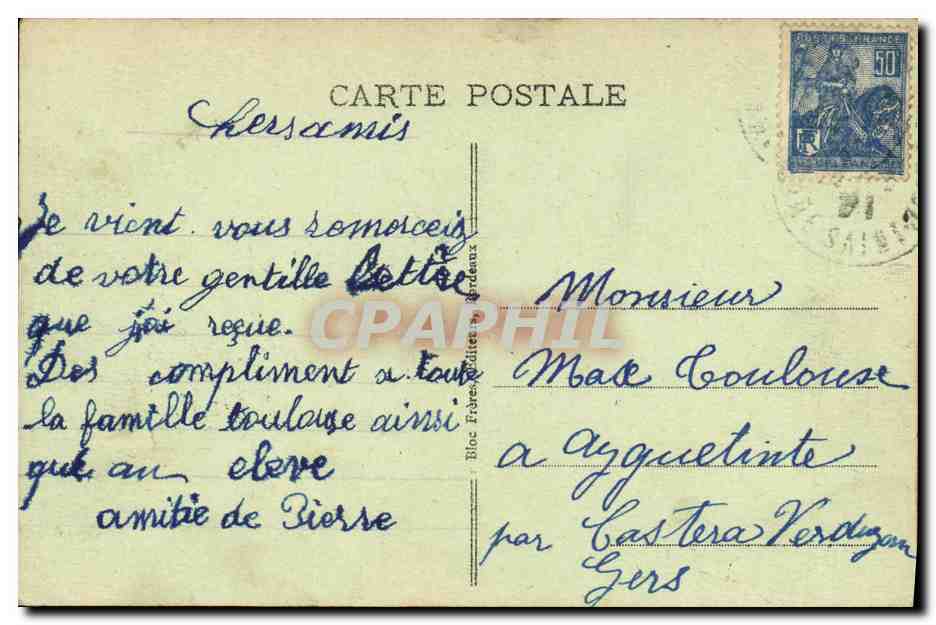 CARTE POSTALE
chersamis
Je vient vous remorceiz
de votre gentille Lettre
que j'ai reçue.
Des compliment a toute
la famille toulouse ainsi
que au eleve
amitie de Pierre
Bloc Frères, Éditeurs, Bordeaux
Monsieur
Max Toulouse
a ayguetinte
par Castera Verduzan
Gers
POSTES FRANCE
50c
RF
CPAPHIL